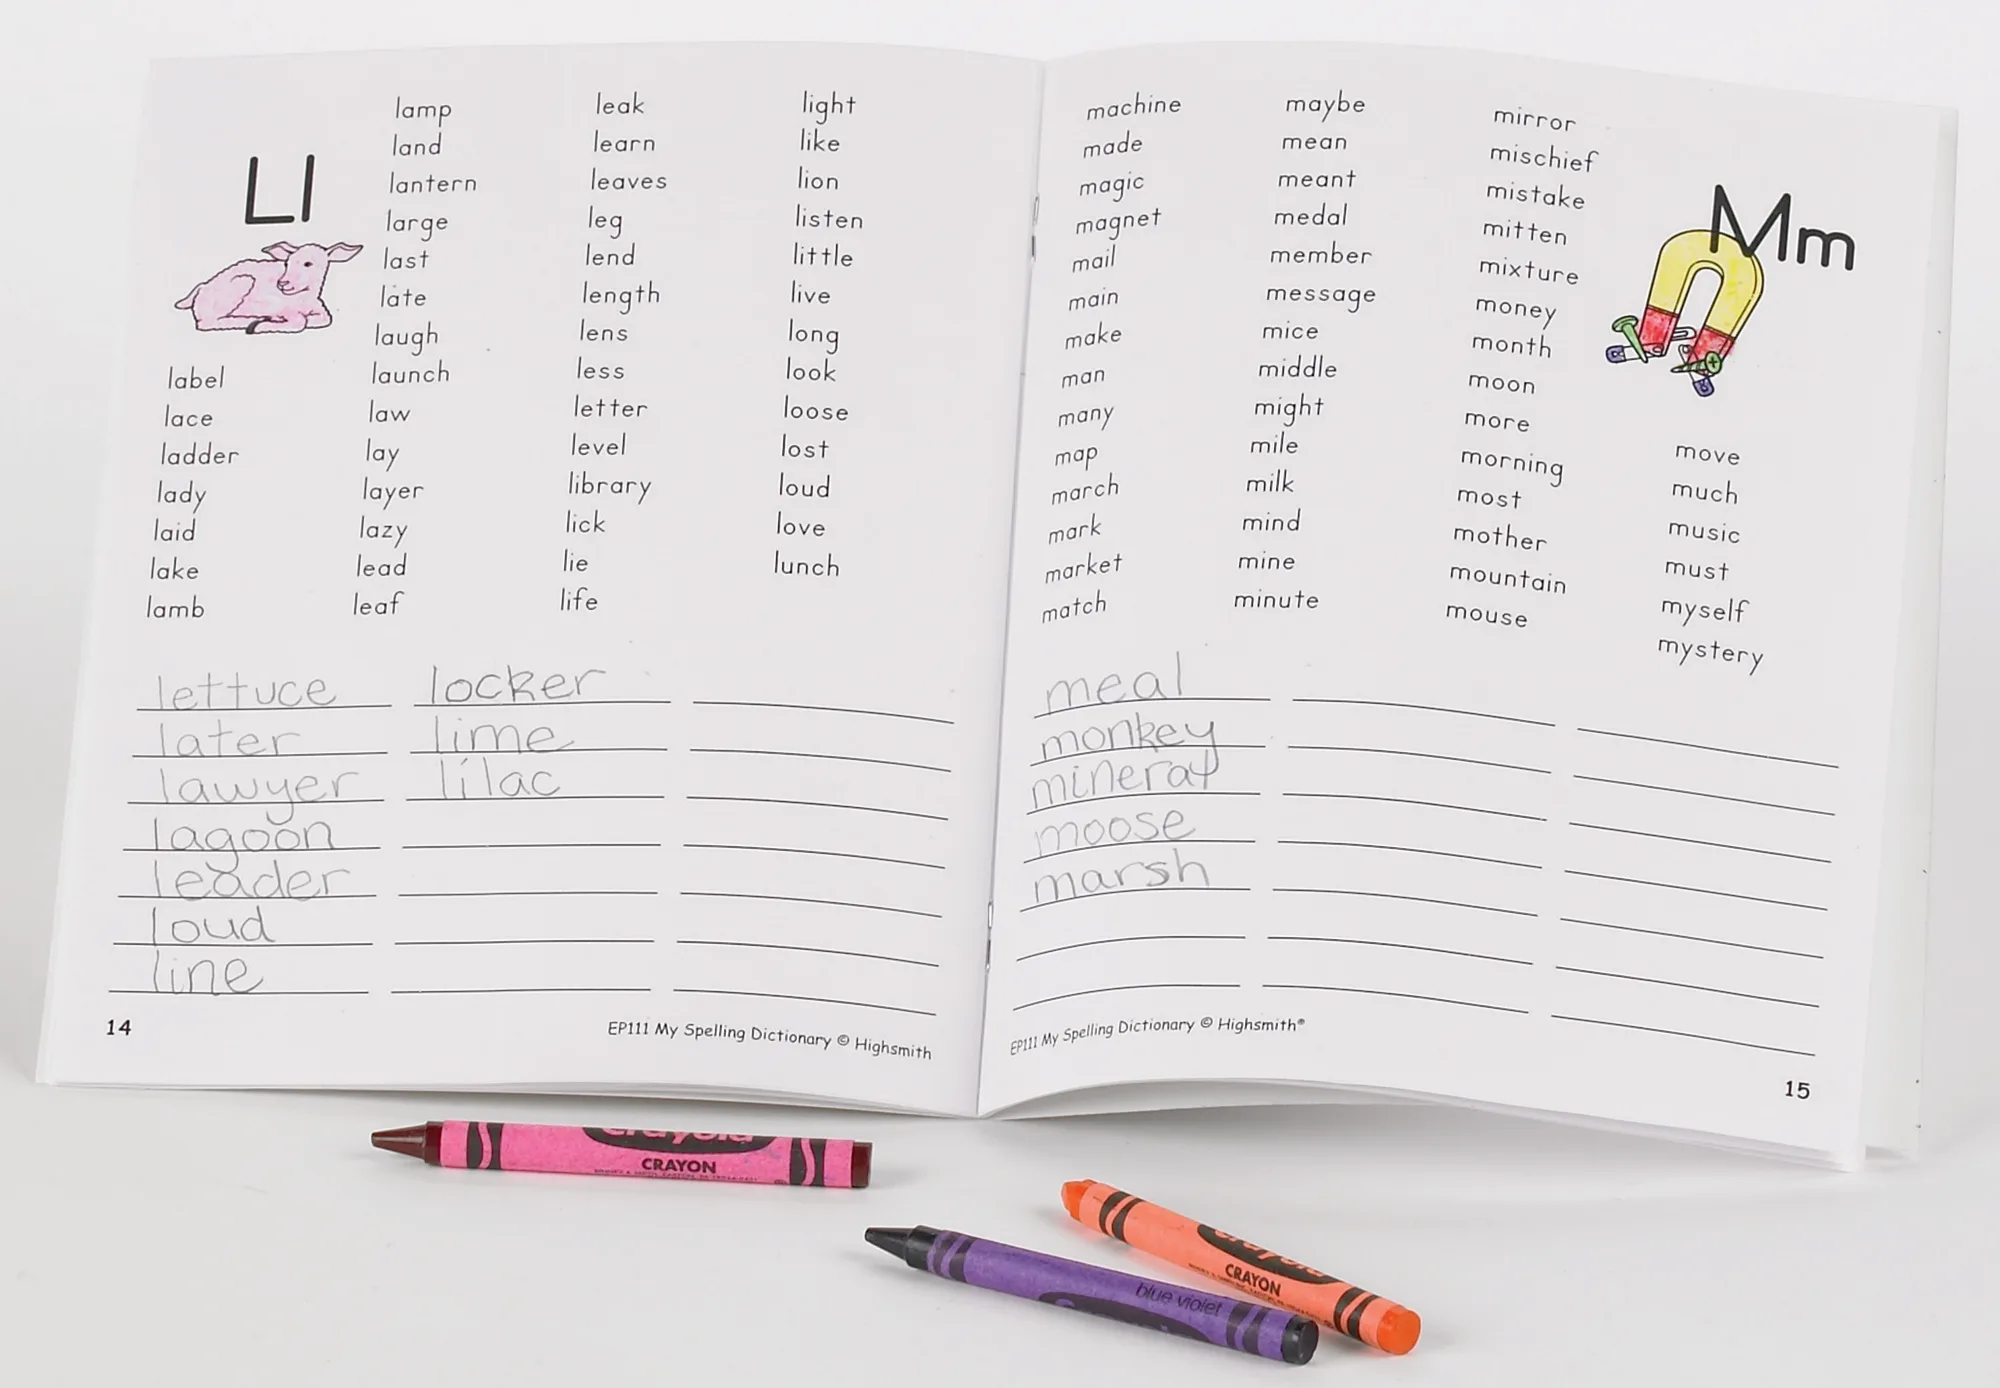 Ll
label
lace
ladder
lady
laid
lake
lamb
lamp
land
lantern
large
last
late
laugh
launch
law
lay
layer
lazy
lead
leaf
leak
learn
leaves
leg
lend
length
lens
less
letter
level
library
lick
lie
life
light
like
lion
listen
little
live
long
look
loose
lost
loud
love
lunch
lettuce
later
lawyer
lagoon
leader
loud
line
locker
lime
lilac
14
EP111 My Spelling Dictionary © Highsmith
machine
made
magic
magnet
mail
main
make
man
many
map
march
mark
market
match
maybe
mean
meant
medal
member
message
mice
middle
might
mile
milk
mind
mine
minute
mirror
mischief
mistake
mitten
mixture
money
month
moon
more
morning
most
mother
mountain
mouse
Mm
move
much
music
must
myself
mystery
meal
monkey
mineral
moose
marsh
EP111 My Spelling Dictionary © Highsmith®
15
crayola
CRAYON
crayola
CRAYON
blue violet